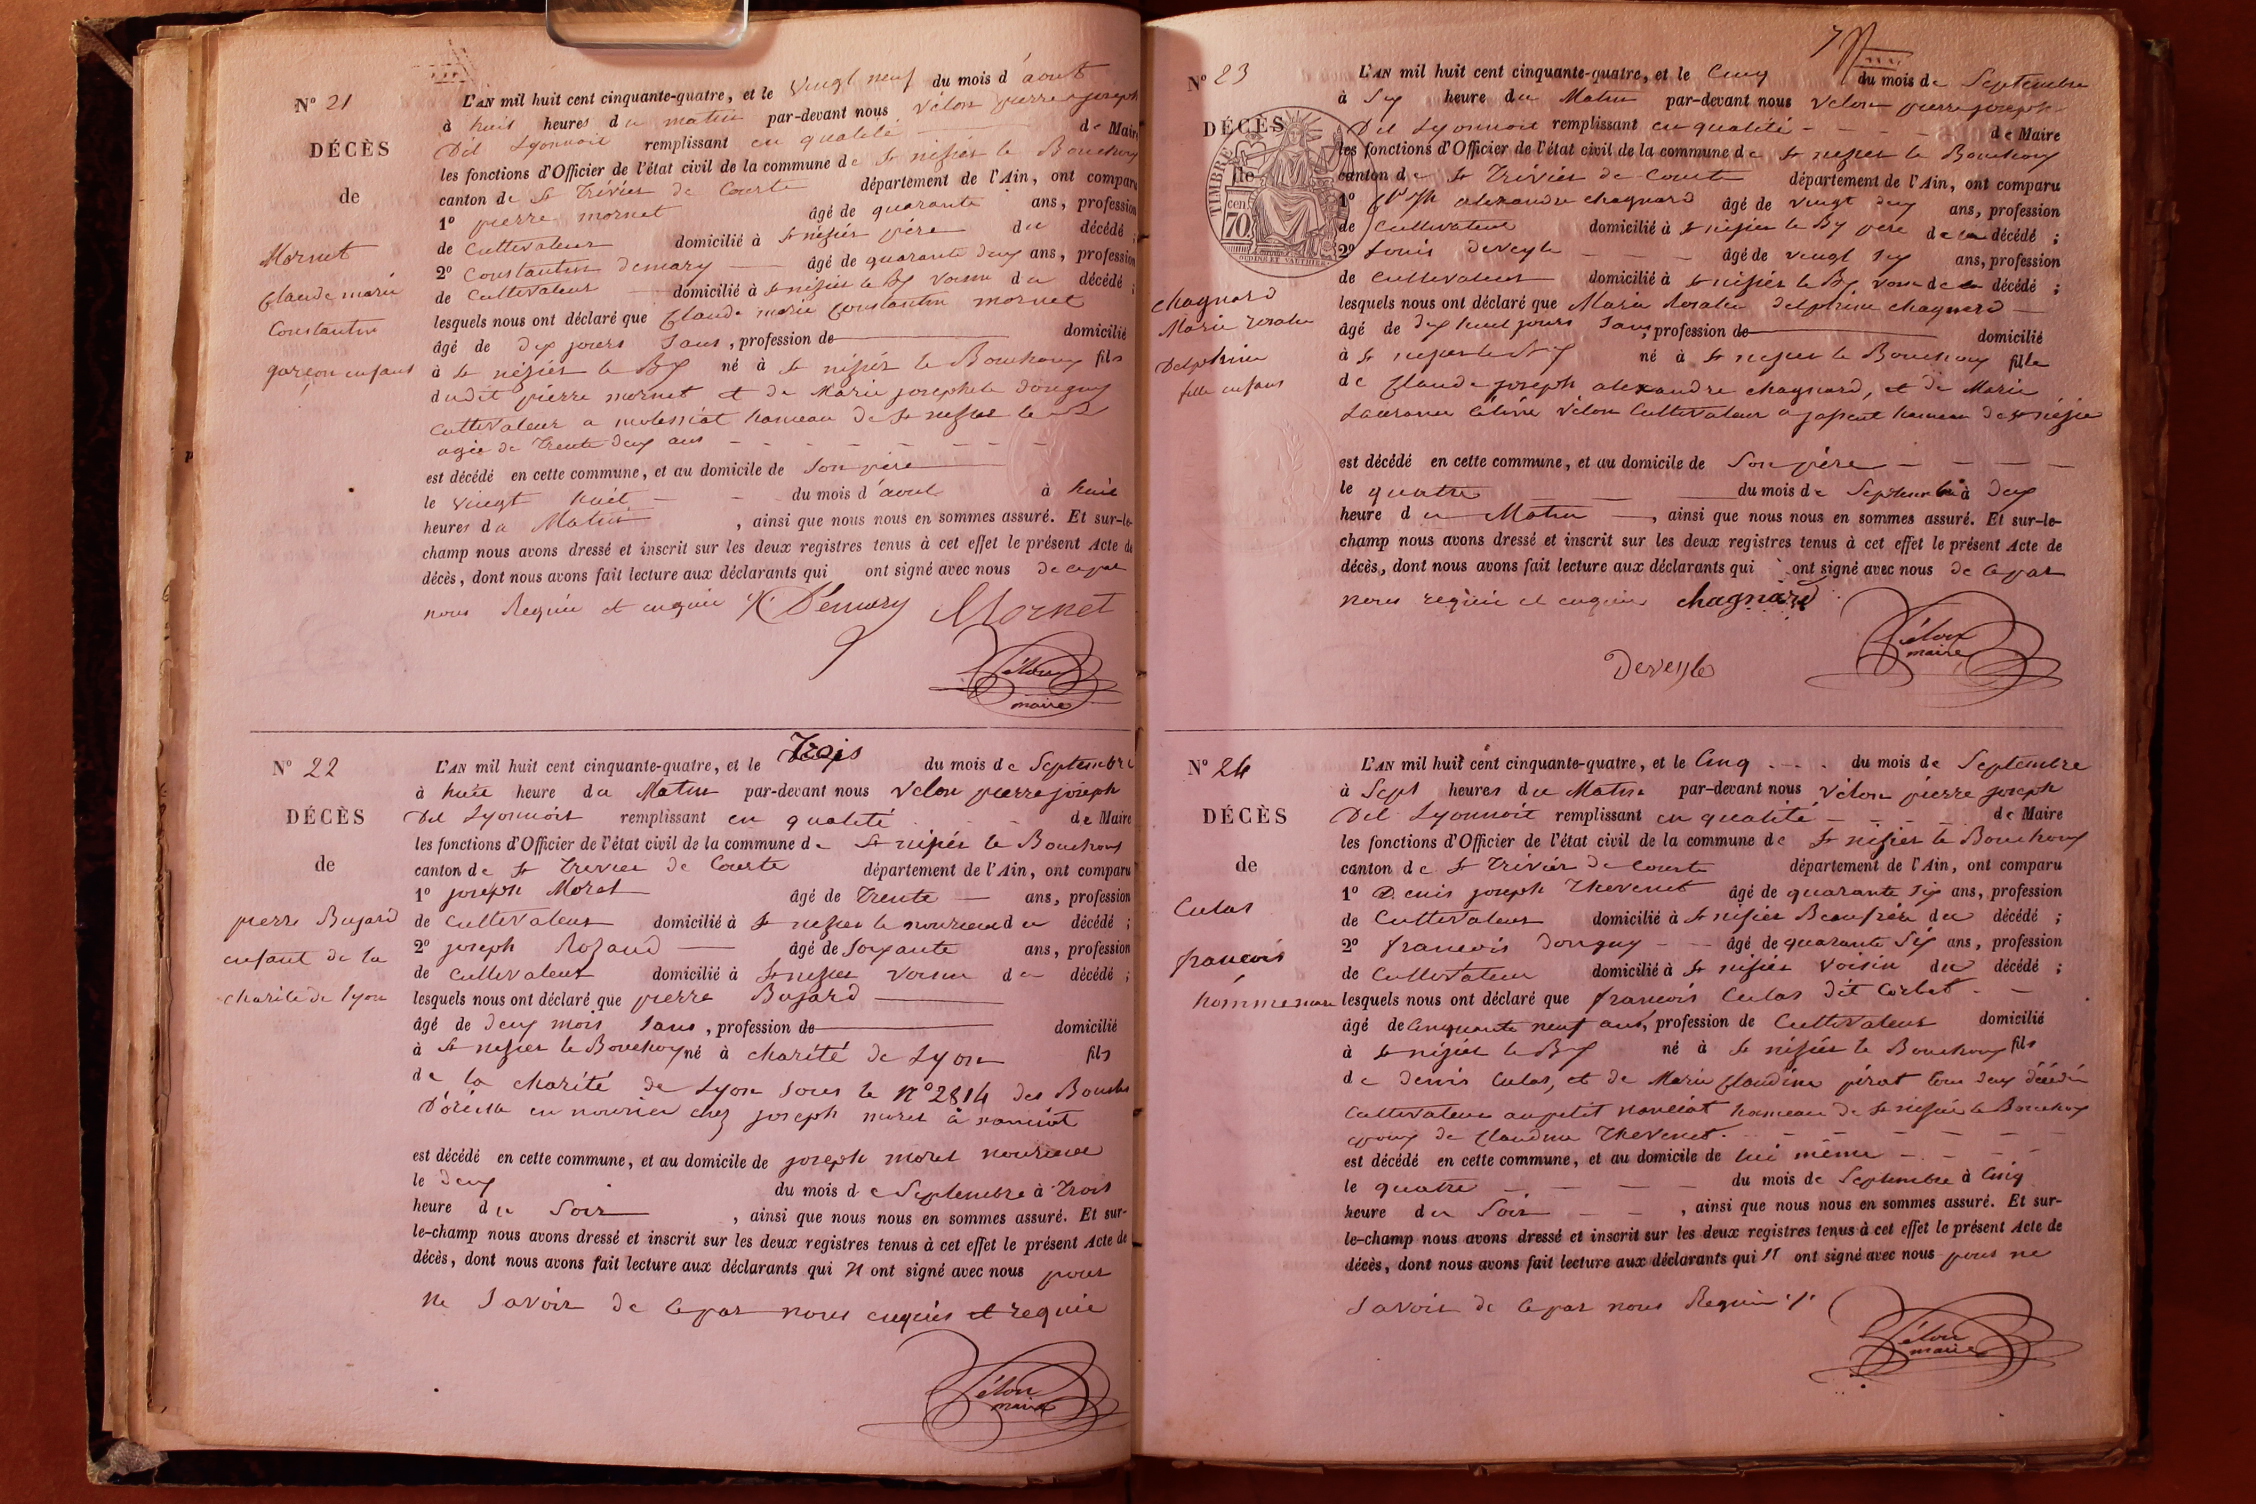 N° 21
DÉCÈS
de
Mornet
Claude marie
Constantin
garçon enfant
L'AN mil huit cent cinquante-quatre, et le vingt neuf du mois d'aout
à huit heures du matin par-devant nous Vélon pierre joseph
Dit Lyonnoit remplissant en qualité de Maire
les fonctions d'Officier de l'état civil de la commune de St nisier le Bouchoux
canton de St Trivier de Courte département de l'Ain, ont comparu
1° pierre mornet âgé de quarante ans, profession
de Cultivateur domicilié à St nisier père du décédé ;
2° Constantin Demary âgé de quarante deux ans, profession
de Cultivateur domicilié à St nisier le Bx voisin du décédé ;
lesquels nous ont déclaré que Claude marie Constantin mornet
âgé de dix jours sans, profession de domicilié
à St nisier le Bx né à St nisier le Bouchoux fils
dudit pierre mornet et de Marie josephte Donguy
Cultivateur a molessiat hameau de St nisier le Bx
agée de Trente deux ans
est décédé en cette commune, et au domicile de son père
le vingt huit du mois d'aout à huit
heures du Matin, ainsi que nous nous en sommes assuré. Et sur-le-
champ nous avons dressé et inscrit sur les deux registres tenus à cet effet le présent Acte de
décès, dont nous avons fait lecture aux déclarants qui ont signé avec nous de ce par
nous Requis et enquis Demary Mornet
Vélon
maire
N° 22
DÉCÈS
de
pierre Bujard
enfant de la
charité de Lyon
L'AN mil huit cent cinquante-quatre, et le Trois du mois de Septembre
à huit heure du Matin par-devant nous Vélon pierre joseph
Dit Lyonnoit remplissant en qualité de Maire
les fonctions d'Officier de l'état civil de la commune de St nisier le Bouchoux
canton de St Trivier de Courte département de l'Ain, ont comparu
1° joseph Morel âgé de Trente ans, profession
de Cultivateur domicilié à St nisier le nouricier du décédé ;
2° joseph Rozand âgé de soixante ans, profession
de Cultivateur domicilié à St nisier voisin du décédé ;
lesquels nous ont déclaré que pierre Bujard
âgé de deux mois sans, profession de domicilié
à St nisier le Bouchoux né à charité de Lyon fils
de la charité de Lyon sous le N° 2814 des Boucles
D'oreille en nourice chez joseph morel à
est décédé en cette commune, et au domicile de joseph morel nouricier
le deux du mois de Septembre à Trois
heure du Soir, ainsi que nous nous en sommes assuré. Et sur-
le-champ nous avons dressé et inscrit sur les deux registres tenus à cet effet le présent Acte de
décès, dont nous avons fait lecture aux déclarants qui n ont signé avec nous pour
ne savoir de ce par nous enquis et requis
Vélon
maire
N° 23
DÉCÈS
de
TIMBRE
cen 70
chagnard
Marie rosalie
Delphine
fille enfant
L'AN mil huit cent cinquante-quatre, et le Cinq du mois de Septembre
à Six heure du Matin par-devant nous Vélon pierre joseph
Dit Lyonnoit remplissant en qualité de Maire
les fonctions d'Officier de l'état civil de la commune de St nisier le Bouchoux
canton de St Trivier de Courte département de l'Ain, ont comparu
1° alexandre chagnard âgé de vingt deux ans, profession
de Cultivateur domicilié à St nisier le Bx père de la décédé ;
2° Louis Deveyle âgé de vingt six ans, profession
de Cultivateur domicilié à St nisier le Bx voisin de la décédé ;
lesquels nous ont déclaré que Marie Rosalie Delphine chagnard
âgé de dix huit jours sans, profession de domicilié
à St nisier le Bx né à St nisier le Bouchoux fille
de Claude joseph alexandre chagnard, et de Marie
Célinie Vélon Cultivateur a hameau de St nisier
est décédé en cette commune, et au domicile de son père
le quatre du mois de Septembre à deux
heure du Matin, ainsi que nous nous en sommes assuré. Et sur-le-
champ nous avons dressé et inscrit sur les deux registres tenus à cet effet le présent Acte de
décès, dont nous avons fait lecture aux déclarants qui ont signé avec nous de ce par
nous requis et enquis chagnard
Deveyle
Vélon
maire
N° 24
DÉCÈS
de
Culas
francois
L'AN mil huit cent cinquante-quatre, et le Cinq du mois de Septembre
à Sept heures du Matin par-devant nous Vélon pierre joseph
Dit Lyonnoit remplissant en qualité de Maire
les fonctions d'Officier de l'état civil de la commune de St nisier le Bouchoux
canton de St Trivier de Courte département de l'Ain, ont comparu
1° Denis joseph Thevenet âgé de quarante six ans, profession
de Cultivateur domicilié à St nisier Beaufrère du décédé ;
2° francois Donguy âgé de quarante six ans, profession
de Cultivateur domicilié à St nisier voisin du décédé ;
lesquels nous ont déclaré que francois Culas dit Corbet
âgé de Cinquante neuf ans, profession de Cultivateur domicilié
à St nisier le Bx né à St nisier le Bouchoux fils
de denis Culas, et de Marie Claudine pirat tous deux décédés
Cultivateur au petit hameau de St nisier le Bouchoux
epoux de Claudine Thevenet.
est décédé en cette commune, et au domicile de lui même
le quatre du mois de Septembre à Cinq
heure du Soir, ainsi que nous nous en sommes assuré. Et sur-
le-champ nous avons dressé et inscrit sur les deux registres tenus à cet effet le présent Acte de
décès, dont nous avons fait lecture aux déclarants qui n ont signé avec nous pour ne
savoir de ce par nous Requis
Vélon
maire